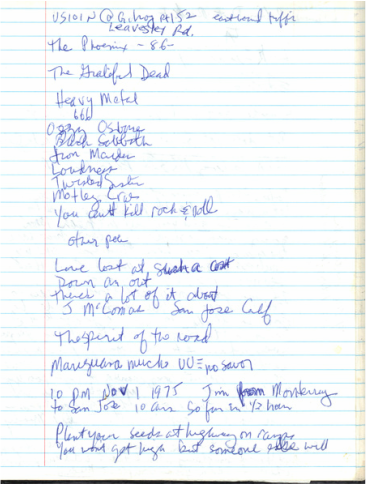 US101 N @ Gilroy Rt 152 eastbound traffic
Leavesley Rd.
The Phoenix - 86 -
The Grateful Dead
Heavy Metal
666
Ozzy Osborne
Black Sabbath
Iron Maiden
Loudness
Twisted Sister
Motley Crue
You Can't kill rock & roll
other pen
Love lost at such a cost
Pourn an out
There's a lot of it about
J McComas San Jose Calf
The spirit of the road
no savor
10 PM Nov 1 1975 Jim from Monterrey
to San Jose 10 cars so far in 1/2 hour
Plant your seeds at highway on ramps
You wont get high but someone else will